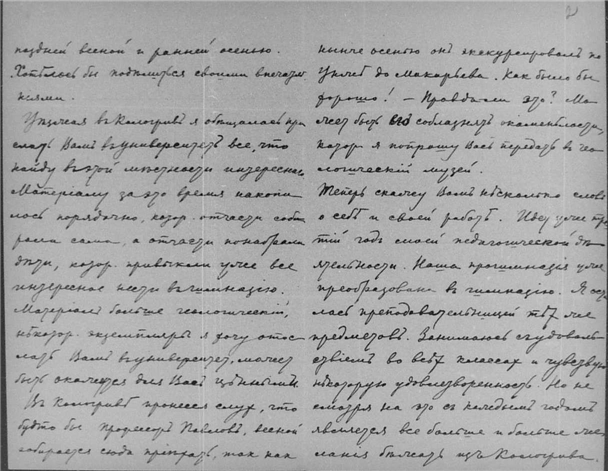 поздней весной и ранней осенью.
Хотѣлось бы подѣлиться своими впечатлѣ-
ніями.
Уѣзжая въ Кологривъ я обѣщалась при-
слать Вамъ въ университетъ все, что
найду въ этой мѣстности интереснаго.
Матеріалу за это время накопи-
лось порядочно, котор. отчасти соби-
рала сама, а отчасти понабрали
дѣти, котор. привыкли уже все
интересное нести въ гимназію.
Матеріалъ больше геологическій,
нѣкотор. экземпляры я хочу отос-
лать Вамъ въ университетъ, можетъ
быть окажется для Васъ цѣннымъ.
Въ Кологривѣ пронесся слух, что
будто бы профессоръ Павловъ, весной
собирается сюда пріѣхать, так как
нынче осенью онъ экскурсировалъ по
Унжѣ до Макарьева. Как было бы
хорошо! – Правда ли это? Мо-
жет быть его соблазнятъ окаменѣлости,
котор. я попрошу Васъ передать в гео-
логическій музей.
Теперь скажу Вамъ нѣсколько словъ
о себѣ и своей работѣ. Идет уже тре-
тій годъ моей педагогической дѣ-
ятельности. Наша прогимназія уже
преобразована в гимназію. Я оста-
лась преподавательницей тѣх же
предметовъ. Занимаюсь с удоволь-
ствіемъ во всѣх классах и чувствую
нѣкоторую удовлетворенность. Но не
смотря на это с каждымъ годомъ
является все больше и больше же-
ланія бѣжать изъ Кологрива.